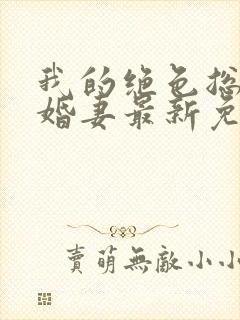 我的绝色总
婚妻最新免
賣萌無敵小小